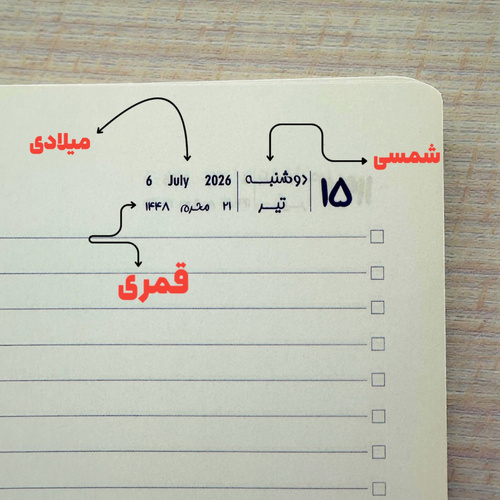 میلادی
شمسی
۱۵
دوشنبه
تیر
6 July 2026
۲۱ محرم ۱۴۴۸
قمری